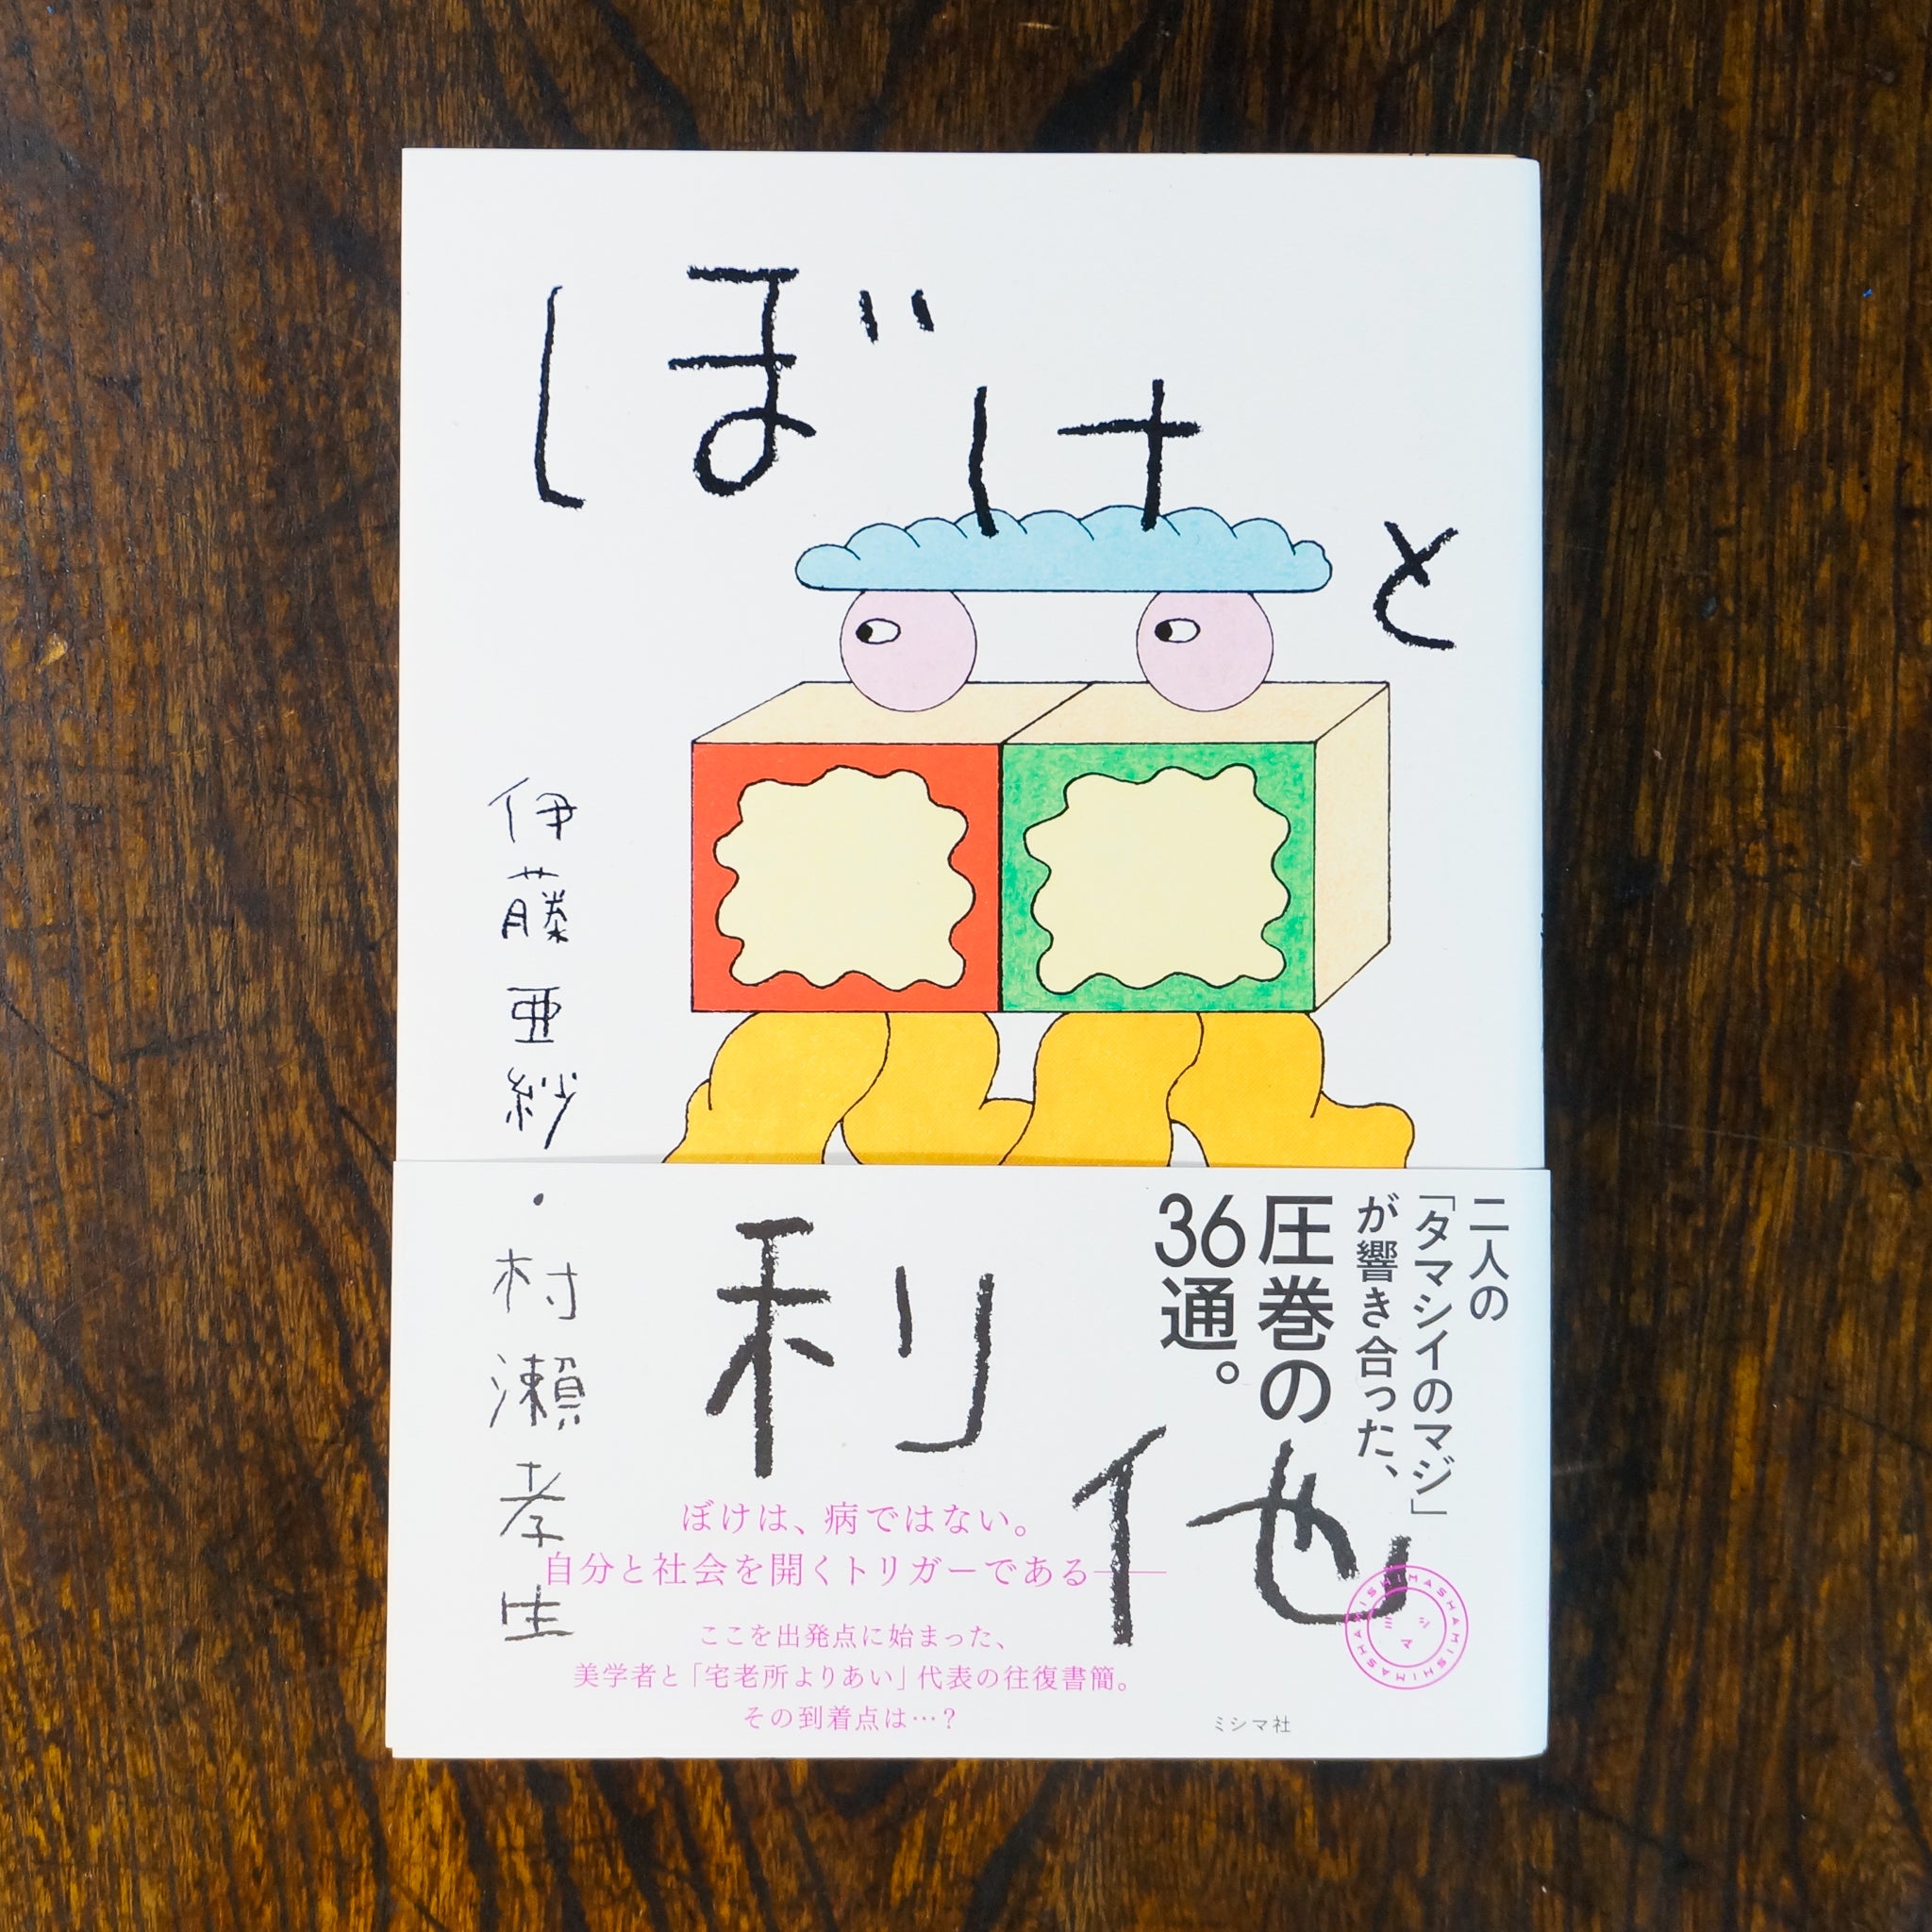 ぼけと
利他
伊藤亜紗・村瀨孝生
二人の
「タマシイのマジ」
が響き合った、
圧巻の
36通。
ぼけは、病ではない。
自分と社会を開くトリガーである——
ここを出発点に始まった、
美学者と「宅老所よりあい」代表の往復書簡。
その到着点は…?
MISHIMASHA MISHIMASHA
ミシマ
ミシマ社